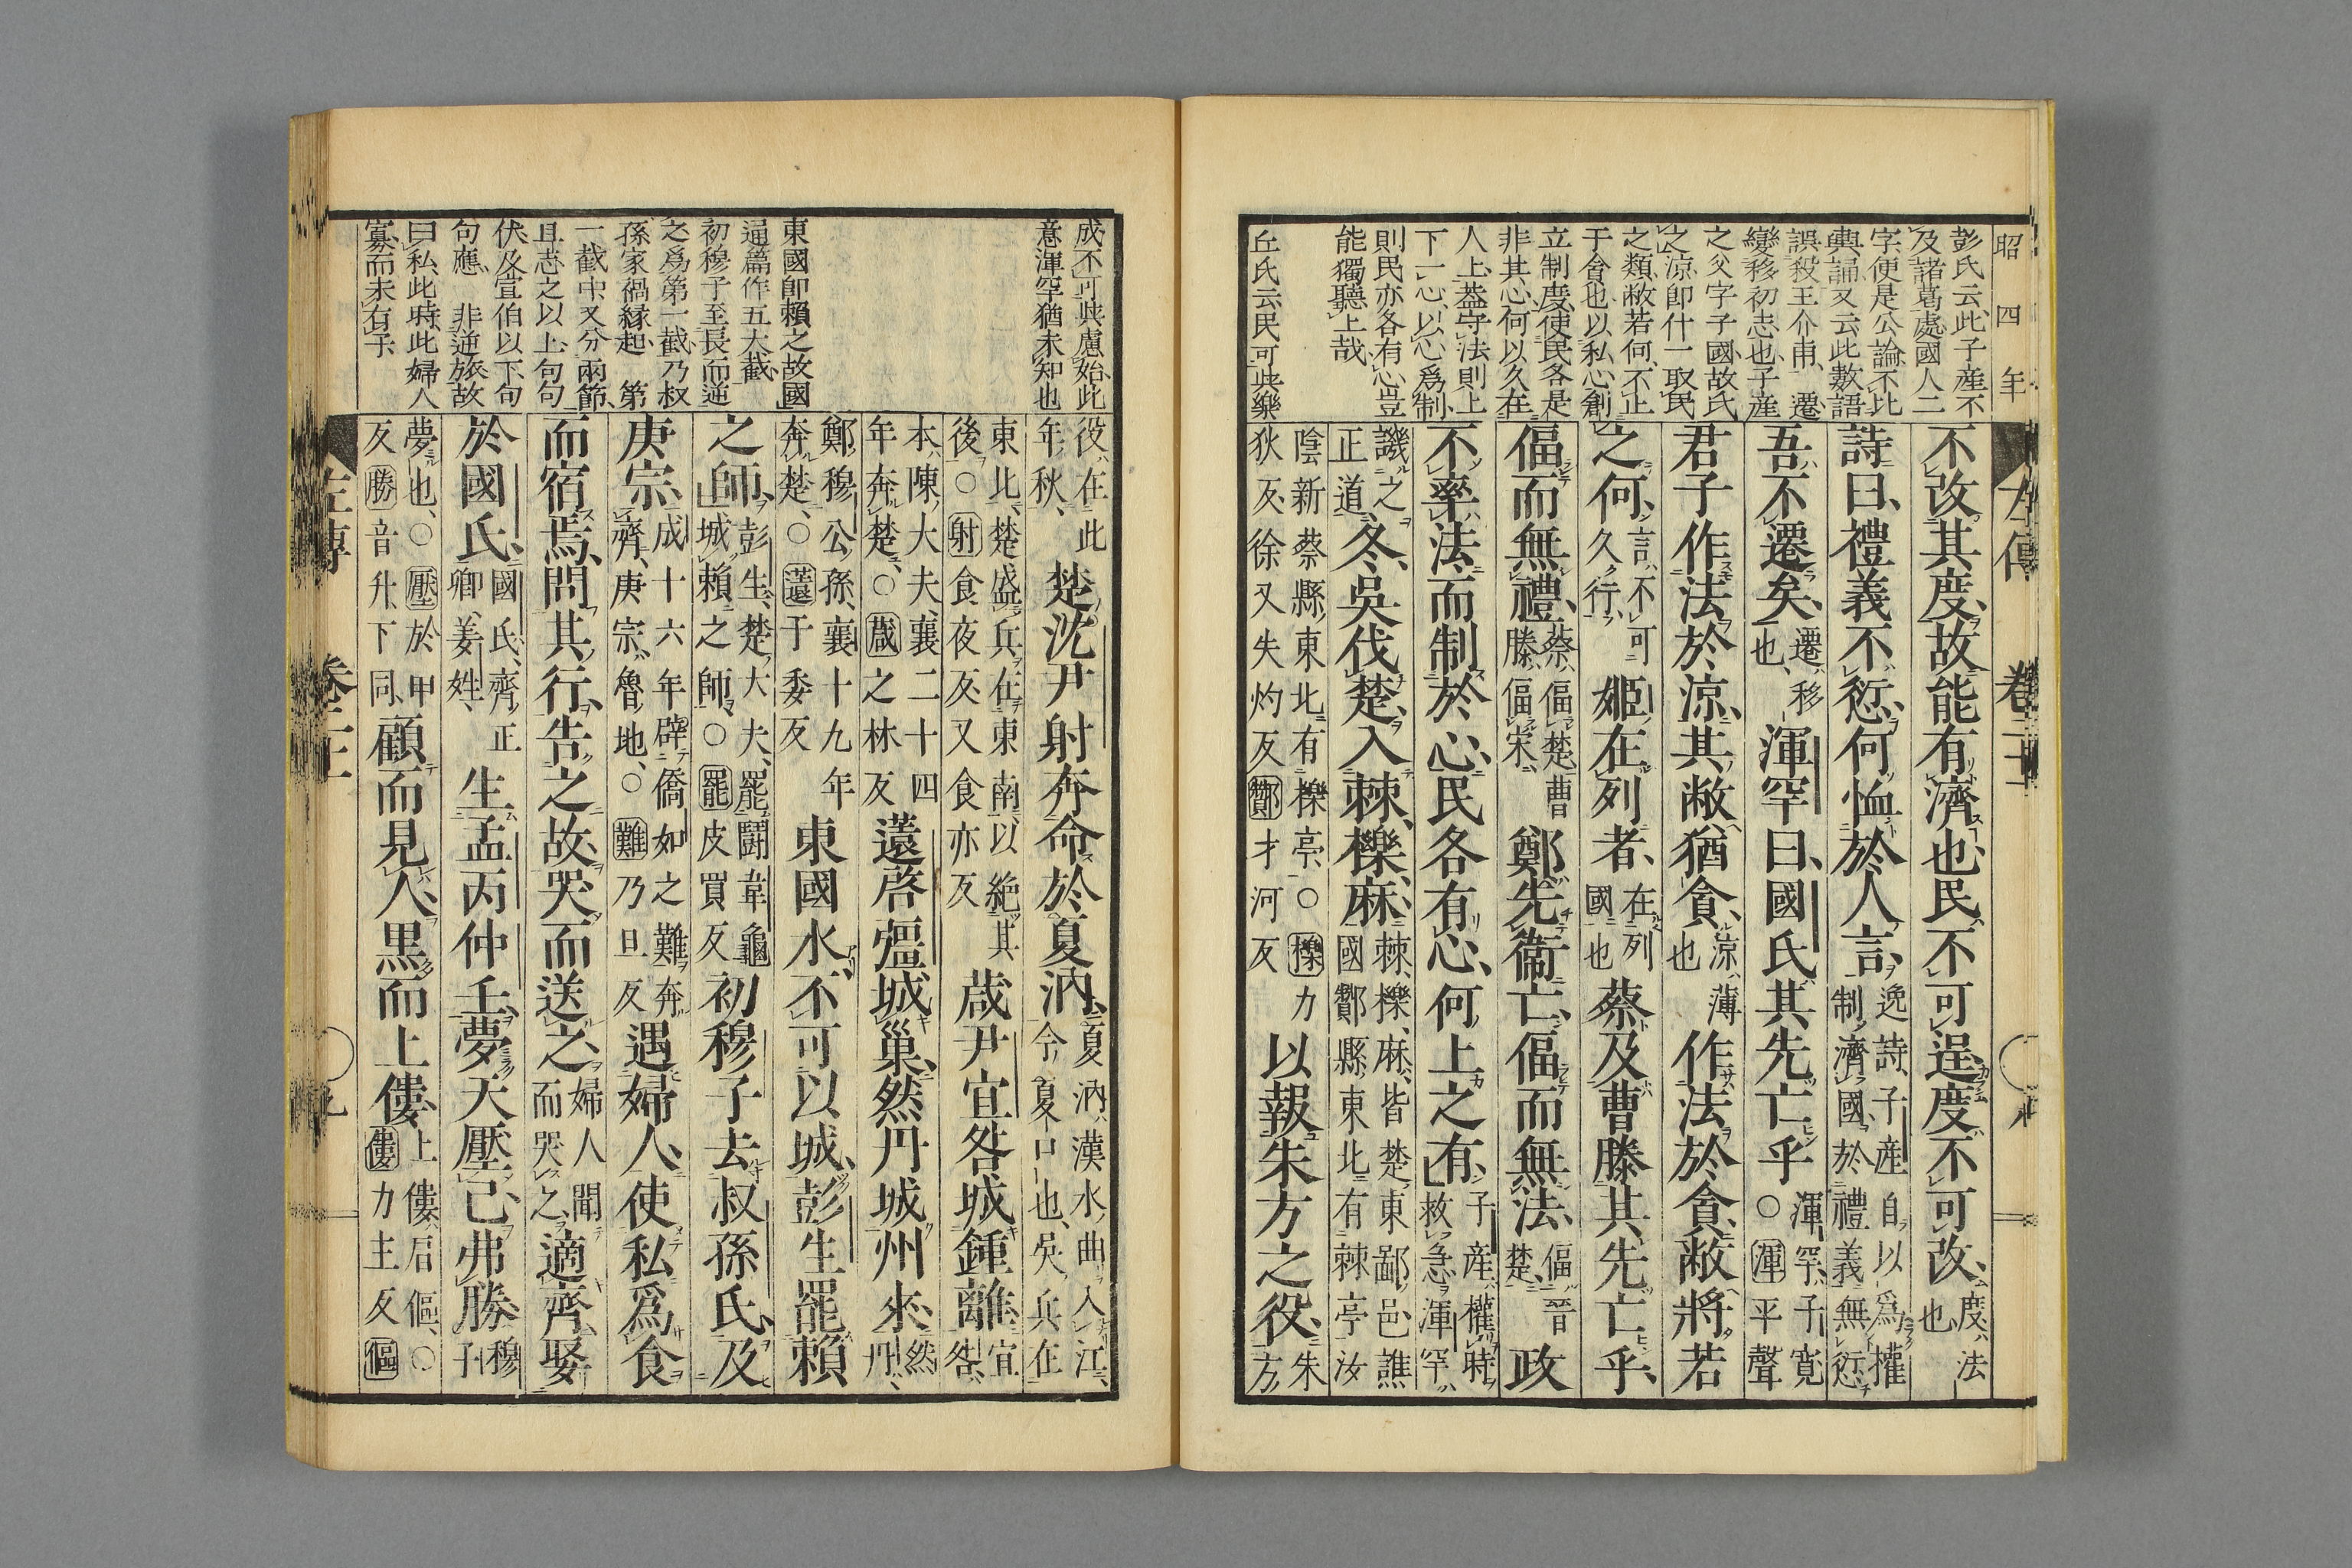 昭四年
彭氏云此子産不
及諸葛處國人二
字便是公論不比
輿誦又云此數語
誤殺王介甫 遷
變移初志也子産
之父字子國故氏
之涼即什一取民
之類敝若何不止
于貪也以私心創
立制度使民各是
非其心何以久在
人上葢守法則上
下一心以心爲制
則民亦各有心豈
能獨聽上哉
丘氏云民可與樂
不改其度故能有濟也民不可逞度不可改度法也
詩曰禮義不愆何恤於人言逸詩子產自以爲權制濟國於禮義無愆
吾不遷矣遷移也渾罕曰國氏其先亡乎渾罕子寛○渾平聲
君子作法於涼其敝猶貪涼薄也作法於貪敝將若
之何言不可久行姬在列者在列國也蔡及曹滕其先亡乎
偪而無禮蔡偪楚曹滕偪宋鄭先衞亡偪而無法偪晉楚政
不率法而制於心民各有心何上之有子產權時救急渾罕
譏之正道冬吳伐楚入棘櫟麻棘櫟麻皆楚東鄙邑譙國酇縣東北有棘亭汝
陰新蔡縣東北有櫟亭○櫟力狄反徐又失灼反酇才河反以報朱方之役朱方
成不可與慮始此
意渾罕猶未知也
東國即賴之故國
逼篇作五大截
初穆子至長而逆
之爲第一截乃叔
孫家禍縁起 第
一截中又分兩節
且志之以上句句
伏及宣伯以下句
句應 非逆旅故
曰私此時此婦人
寡而未有子
役在此年秋楚沈尹射奔命於夏汭夏汭漢水曲入江今夏口也吳兵在
東北楚盛兵在東南以絶其後○射食夜反又食亦反葴尹宜咎城鍾離宜咎
本陳大夫襄二十四年奔楚○葴之林反薳啓彊城巢然丹城州來然丹
鄭穆公孫襄十九年奔楚○薳于委反東國水不可以城彭生罷賴
之師彭生楚大夫罷鬪韋龜城賴之師○罷皮買反初穆子去叔孫氏及
庚宗成十六年辟僑如之難奔齊庚宗魯地○難乃旦反遇婦人使私爲食
而宿焉問其行告之故哭而送之婦人聞而哭之適齊娶
於國氏國氏齊正卿姜姓生孟丙仲壬夢天壓己弗勝穆子
夢也○壓於甲反勝音升下同顧而見人黑而上僂上僂肩傴○僂力主反傴